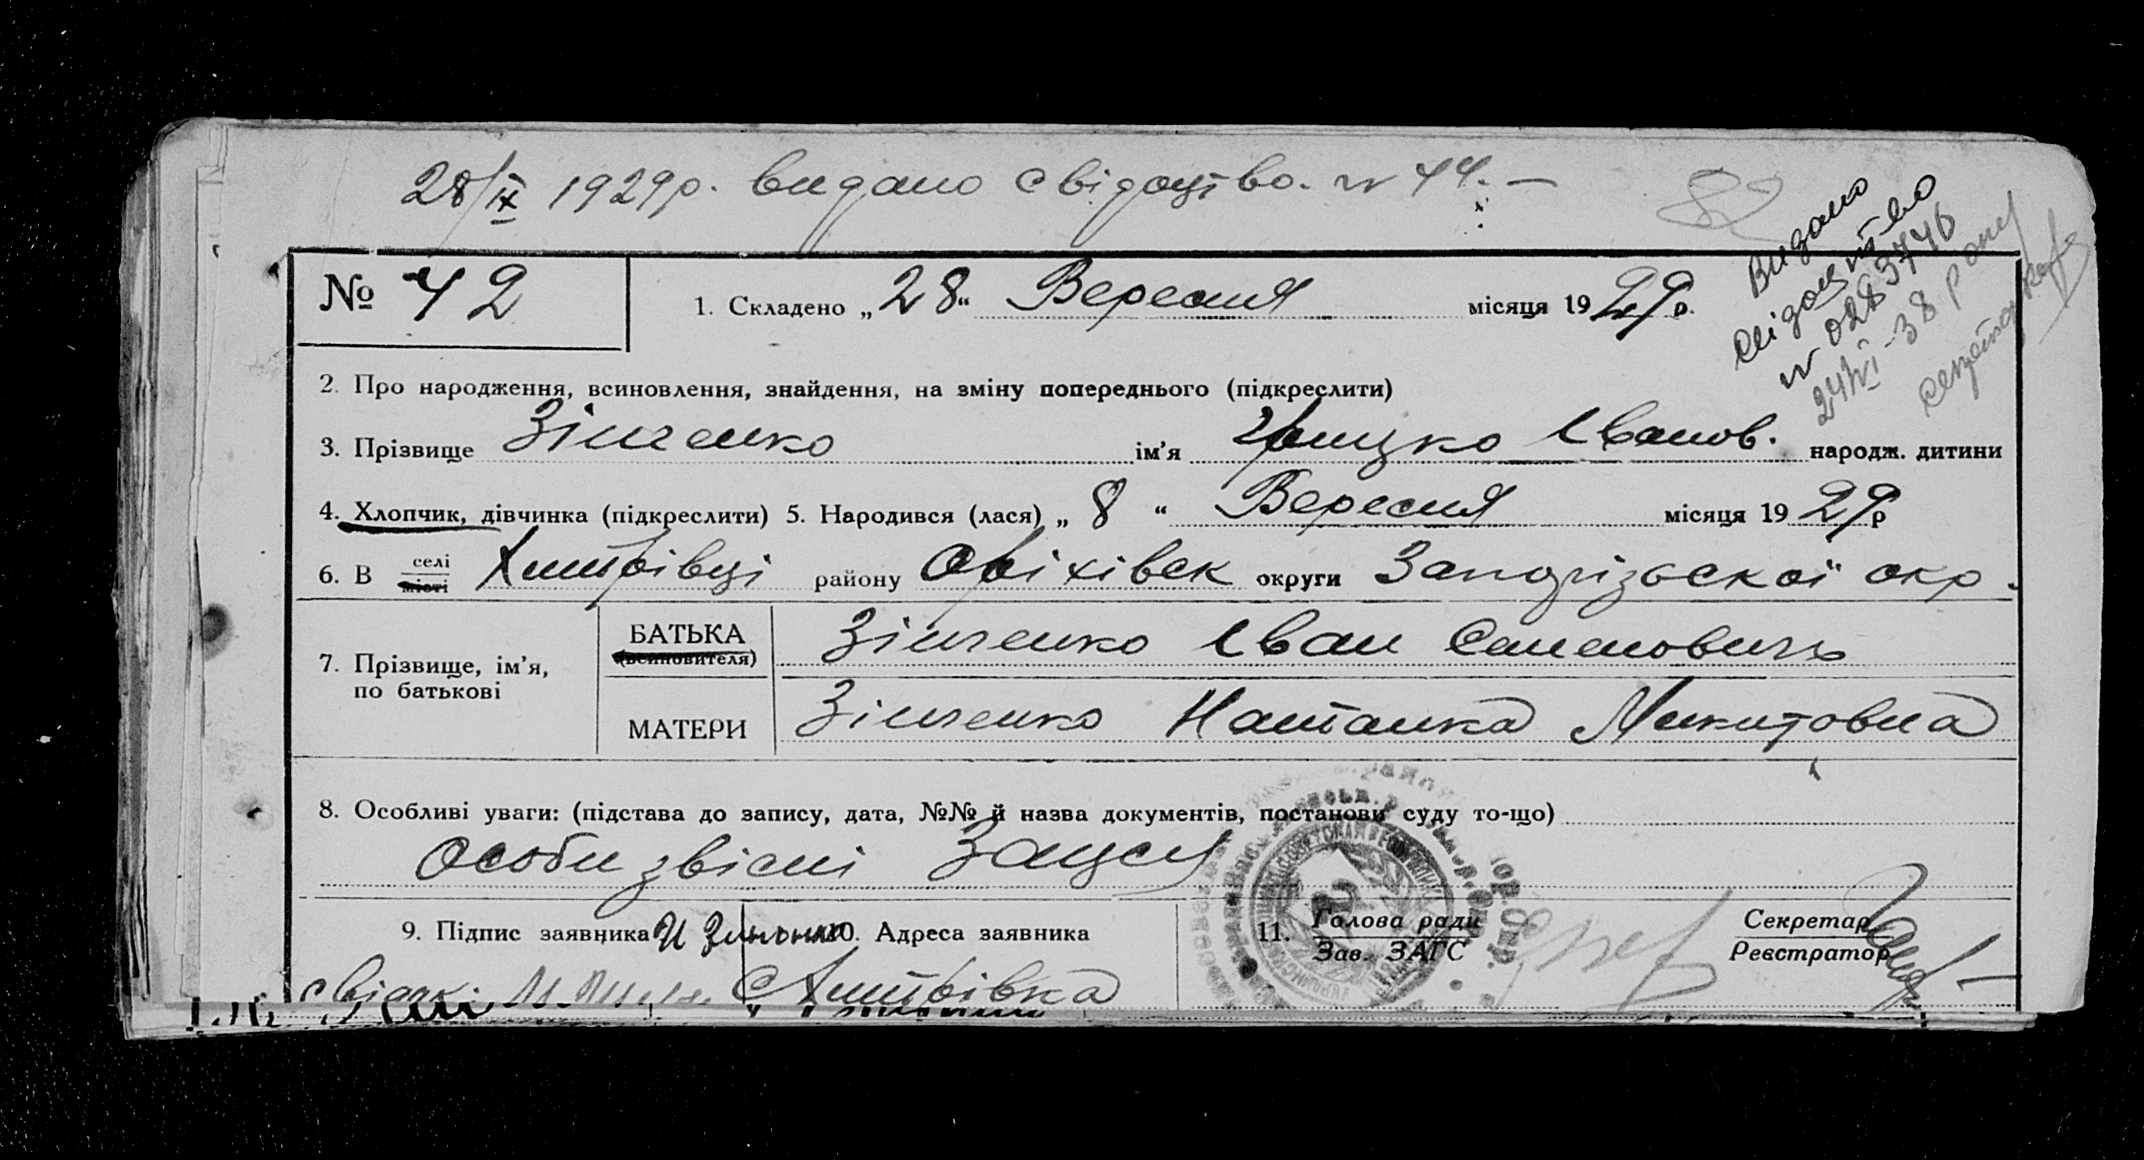 28/IX 1929р. видано свідоцтво. № 44. —
82
Видано
свідоцтво
№ 0283746
24/VI-38 р
№ 42
1. Складено „28“ Вересня місяця 1929р.
2. Про народження, всиновлення, знайдення, на зміну попереднього (підкреслити)
3. Прізвище Зінченко ім’я Грицко Іванов. народж. дитини
4. Хлопчик, дівчинка (підкреслити) 5. Народився (лася) „ 8 “ Вересня місяця 1929р
6. В селі місті Дмитрівці району Оріхівск округи Запорізьскої окр.
7. Прізвище, ім’я, по батькові
БАТЬКА (всиновителя) Зінченко Іван Семеновичь
МАТЕРИ Зінченко Наталка Микитовна
8. Особливі уваги: (підстава до запису, дата, №№ й назва документів, постанови суду то-що)
Особи звісні
9. Підпис заявника И Зинченко 10. Адреса заявника
11. Голова ради Зав. ЗАГС
Секретар Реєстратор
свідок:
с Дмитрівка